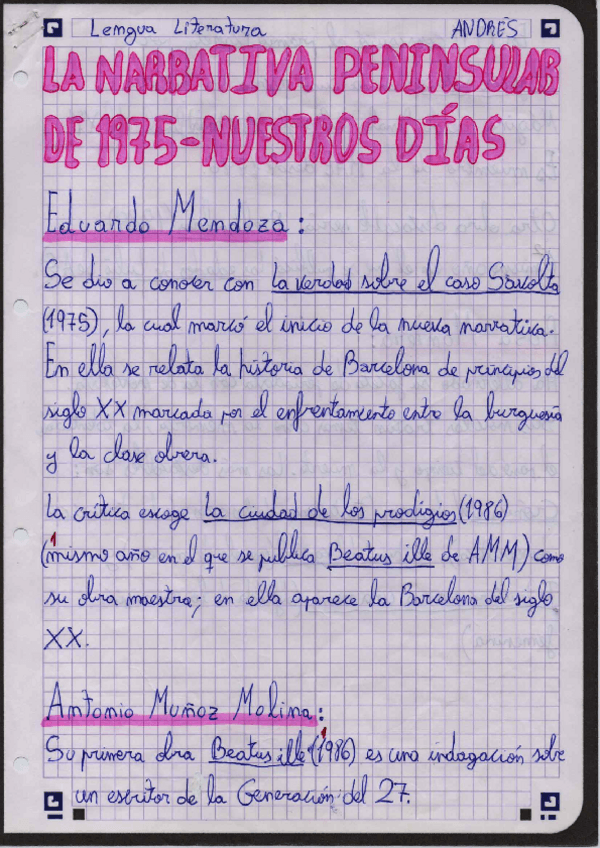 Lengua Literatura ANDRÉS
LA NARRATIVA PENINSULAR
DE 1975-NUESTROS DÍAS
Eduardo Mendoza:
Se dio a conocer con La verdad sobre el caso Savolta
(1975), la cual marcó el inicio de la nueva narrativa.
En ella se relata la historia de Barcelona de principios del
siglo XX marcada por el enfrentamiento entre la burguesía
y la clase obrera.
La crítica escoge La ciudad de los prodigios (1986)
(mismo año en el que se publica Beatus ille de AMM) como
su obra maestra; en ella aparece la Barcelona del siglo
XX.
Antonio Muñoz Molina:
Su primera obra Beatus ille (1986) es una indagación sobre
un escritor de la Generación del 27.